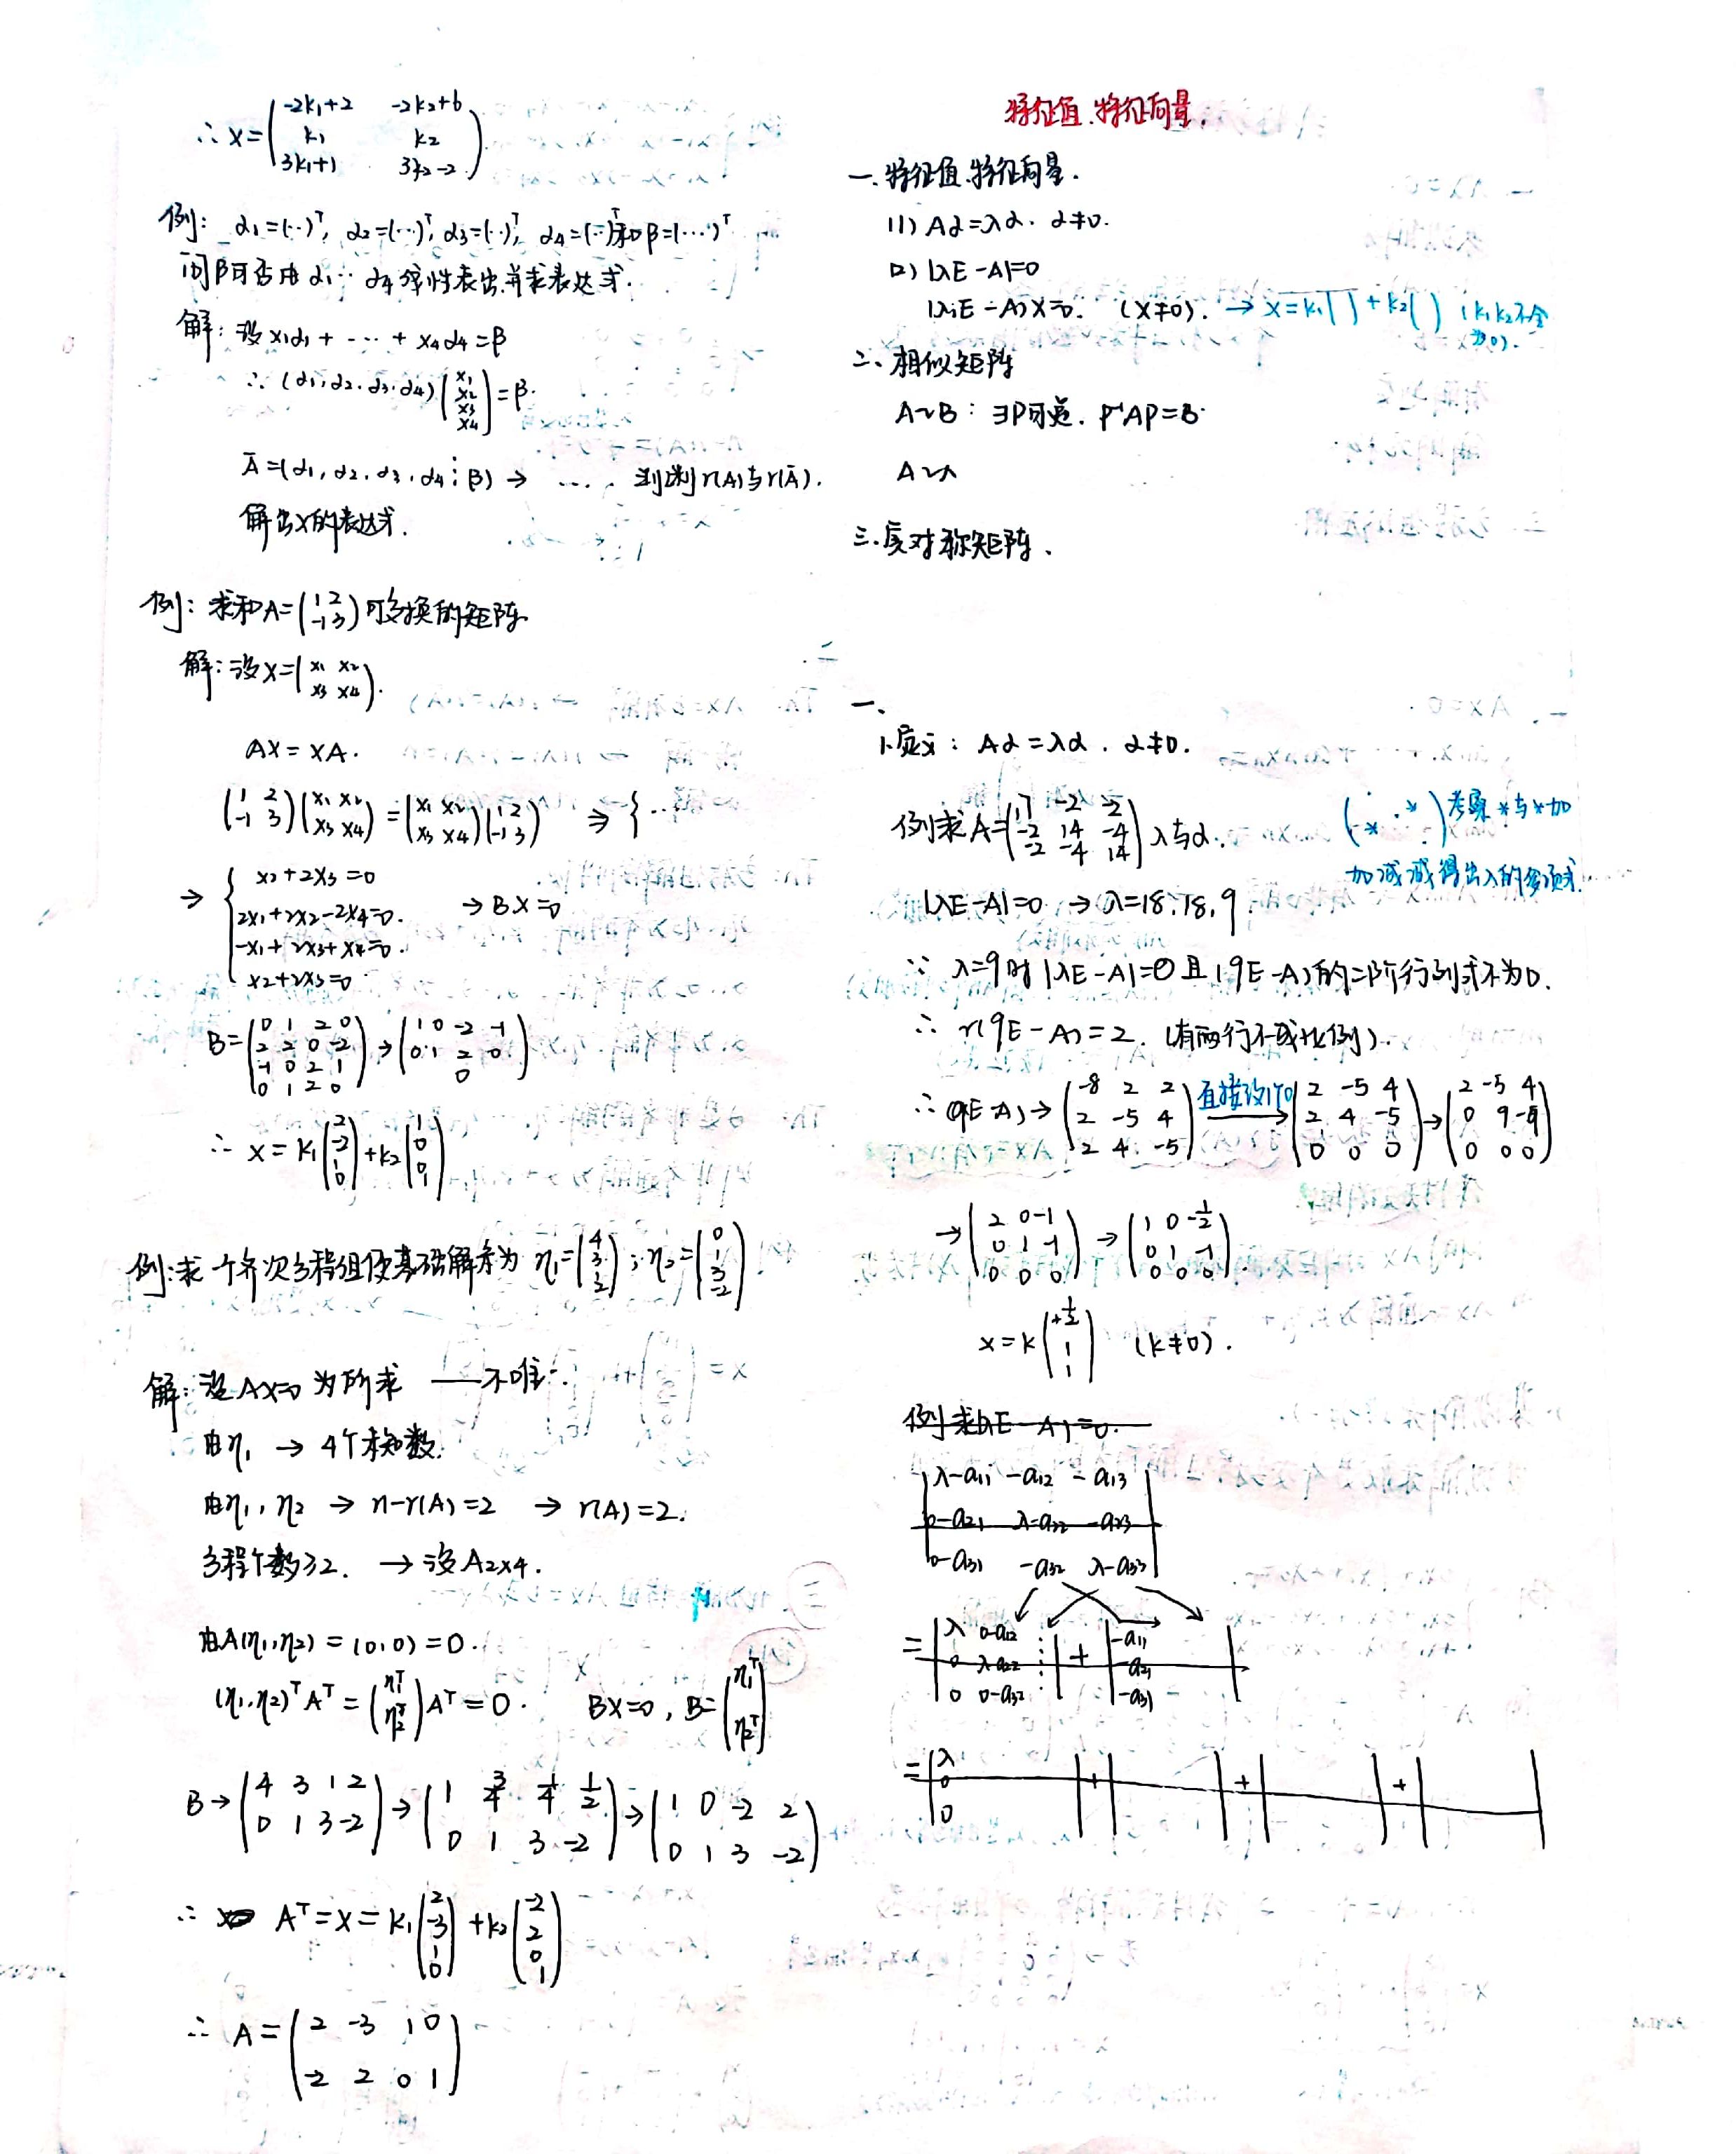 ∴ X = ( -2k₁+2 -2k₂+6
k₁ k₂
3k₁+1 3k₂-2 )
例: α₁=(…)ᵀ, α₂=(…)ᵀ, α₃=(…)ᵀ, α₄=(…)ᵀ和β=(…)ᵀ
问β可否由α₁…α₄线性表出并求表达式.
解: 设x₁α₁ + … + x₄α₄ = β
∴ (α₁, α₂, α₃, α₄) ( x₁
x₂
x₃
x₄ ) = β.
Ā = (α₁, α₂, α₃, α₄ ⋮ β) → …. 判断r(A)与r(Ā).
解出x的表达式.
例: 求和A= ( 1 2
-1 3 ) 可交换的矩阵
解: 设X= ( x₁ x₂
x₃ x₄ ).
AX = XA.
( 1 2
-1 3 ) ( x₁ x₂
x₃ x₄ ) = ( x₁ x₂
x₃ x₄ ) ( 1 2
-1 3 ) ⇒ { …
→ { x₂+2x₃=0
2x₁+2x₂-2x₄=0.
-x₁+2x₃+x₄=0.
x₂+2x₃=0
→ BX=0
B= ( 0 1 2 0
2 2 0 -2
-1 0 2 1
0 1 2 0 ) → ( 1 0 -2 -1
0 1 2 0
0 )
∴ X = k₁ ( 2
-2
1
0 ) + k₂ ( 1
0
0
1 )
例: 求一个齐次方程组使基础解系为 η₁= ( 4
3
1
2 ) ; η₂= ( 0
1
3
-2 )
解: 设AX=0为所求 —— 不唯一.
由η₁ → 4个未知数.
由η₁, η₂ → n-r(A)=2 → r(A)=2.
方程个数≥2. → 设A₂ₓ₄.
由A(η₁,η₂) = (0,0) = 0.
(η₁,η₂)ᵀAᵀ = ( η₁ᵀ
η₂ᵀ ) Aᵀ = 0. BX=0, B= ( η₁ᵀ
η₂ᵀ )
B → ( 4 3 1 2
0 1 3 -2 ) → ( 1 3/4 1/4 1/2
0 1 3 -2 ) → ( 1 0 -2 2
0 1 3 -2 )
∴ Aᵀ = X = k₁ ( 2
-3
1
0 ) + k₂ ( -2
2
0
1 )
∴ A = ( 2 -3 1 0
-2 2 0 1 )
特征值.特征向量.
一.特征值.特征向量.
(1) Aα=λα. α≠0.
(2) |λE-A|=0
(λᵢE-A)X=0. (X≠0). → X=k₁( )+k₂( ) (k₁k₂不全
为0).
二、相似矩阵
A~B: ∃P可逆. P⁻¹AP=B.
A~Λ
三.实对称矩阵.
一.
1.定义: Aα=λα. α≠0.
例求A= ( 17 -2 -2
-2 14 -4
-2 -4 14 ) λ与α. ( * * ) 考虑*与*加
加减减得出λ的多项式.
|λE-A|=0 → λ=18,18,9.
∵ λ=9时|λE-A|=0且(9E-A)的二阶行列式不为0.
∴ r(9E-A)=2. (有两行不成比例).
∴ (9E-A) → ( -8 2 2
2 -5 4
2 4 -5 ) 直接设1行0 → ( 2 -5 4
2 4 -5
0 0 0 ) → ( 2 -5 4
0 9 -9
0 0 0 )
→ ( 2 0 -1
0 1 -1
0 0 0 ) → ( 1 0 -1/2
0 1 -1
0 0 0 )
x=k ( +1/2
1
1 ) (k≠0).
例求|λE-A|=0.
| λ-a₁₁ -a₁₂ -a₁₃
0-a₂₁ λ-a₂₂ -a₂₃
0-a₃₁ -a₃₂ λ-a₃₃ |
= | λ 0-a₁₂ ⋮
0 λ-a₂₂ ⋮
0 0-a₃₂ | + | -a₁₁
-a₂₁
-a₃₁ |
= | λ
0
0 | + | | + | | + | |